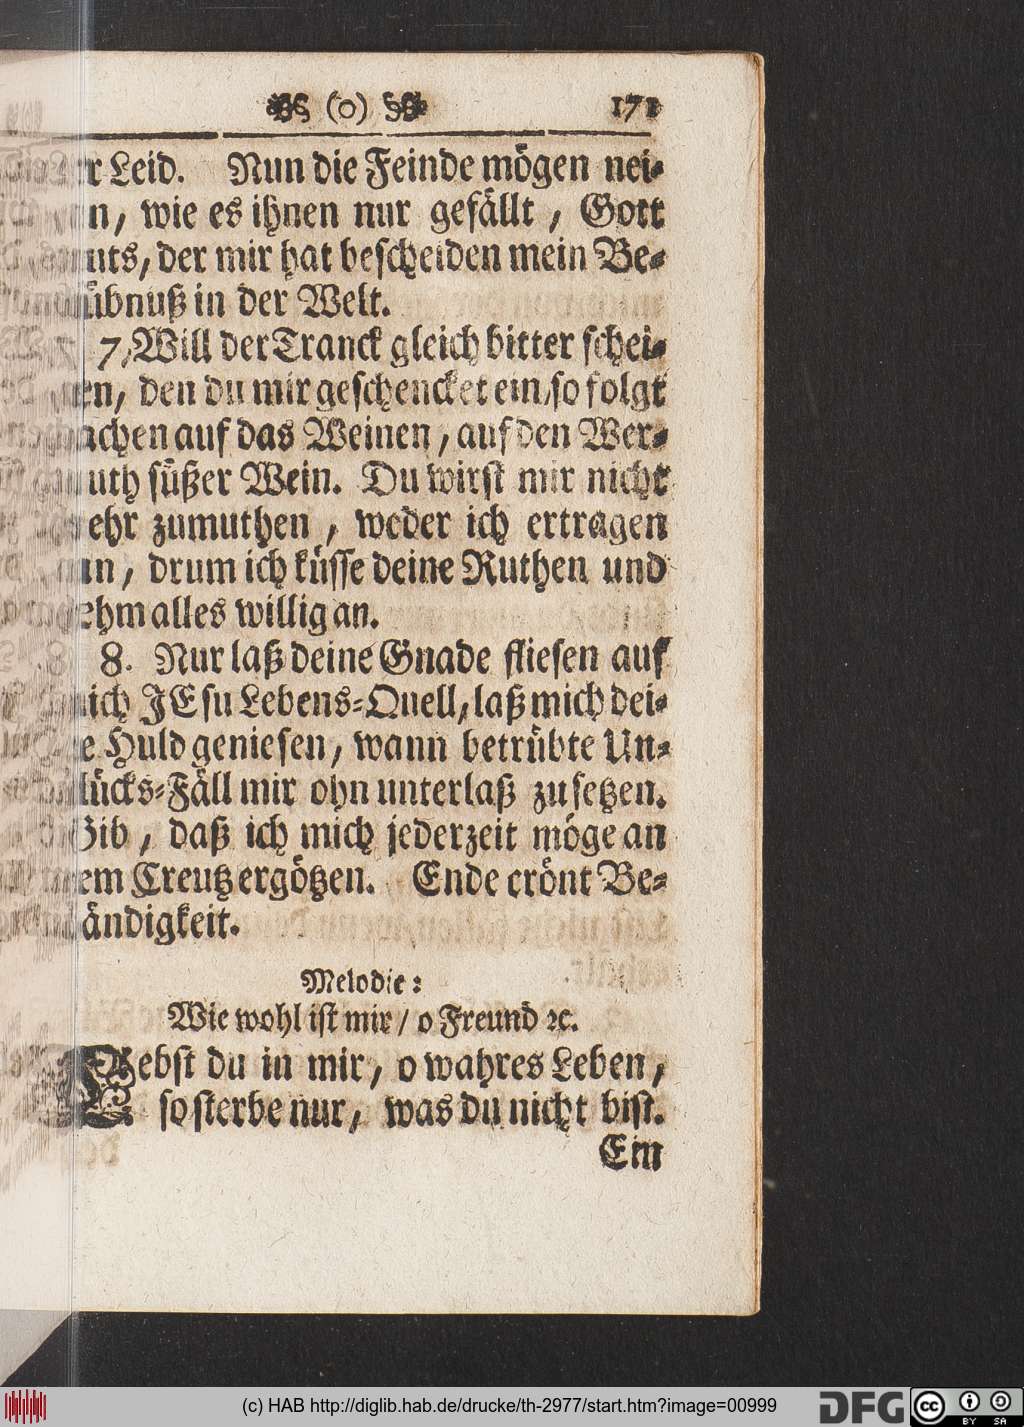 (o) 171
Leid. Nun die Feinde mögen nei-
wie es ihnen nur gefällt, Gott
der mir hat bescheiden mein Be-
in der Welt.
7. Will der Tranck gleich bitter schei-
den du mir geschencket ein, so folgt
auf das Weinen, auf den Wer-
süßer Wein. Du wirst mir nicht
zumuthen, weder ich ertragen
drum ich küsse deine Ruthen und
alles willig an.
8. Nur laß deine Gnade fliesen auf
mich JEsu Lebens-Quell, laß mich dei-
Huld geniesen, wann betrübte Un-
glücks-Fäll mir ohn unterlaß zusetzen.
Gib, daß ich mich jederzeit möge an
Creutz ergötzen. Ende crönt Be-
ständigkeit.
Melodie:
Wie wohl ist mir / o Freund ꝛc.
LEbst du in mir, o wahres Leben,
so sterbe nur, was du nicht bist.
Ein
(c) HAB http://diglib.hab.de/drucke/th-2977/start.htm?image=00999
DFG cc BY SA